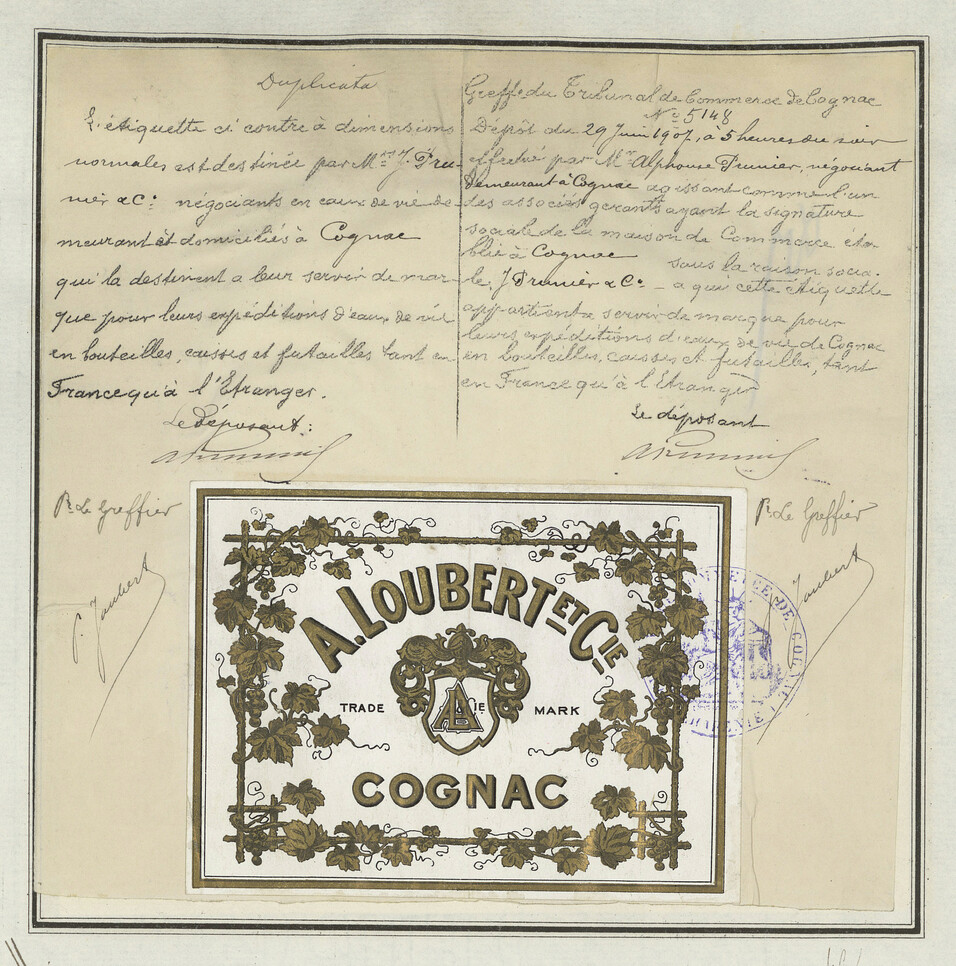 Duplicata
L'étiquette ci contre à dimensions
normales est destinée par Mrs J. Pru-
nier & Ce négociants en eaux de vie de-
meurant et domiciliés à Cognac
qui la destinent a leur servir de mar-
que pour leurs expéditions d'eaux de vie
en bouteilles, caisses et futailles tant en
France qu'à l'Etranger.
Le Déposant :
APrunier
Pr Le Greffier
Joubert
Greffe du Tribunal de Commerce de Cognac
No 5148
Dépôt du 29 Juin 1907, à 5 heures du soir
effectué par Mr Alphonse Prunier, négociant
demeurant à Cognac agissant comme l'un
des associés gérants ayant la signature
sociale de la maison de Commerce éta-
blie à Cognac sous la raison socia-
le, J Prunier & Ce - a qui cette étiquette
appartient a servir de marque pour
leurs expéditions d'eaux de vie de Cognac
en bouteilles, caisses et futailles, tant
en France qu'à l'Etranger
Le déposant
APrunier
Pr Le Greffier
Joubert
A. LOUBERT ET CIE
TRADE MARK
AL CIE
COGNAC
DE COGNAC